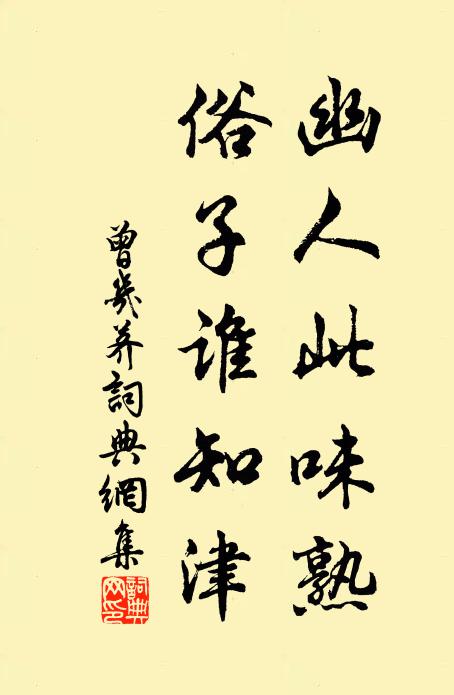 幽人此味熟
俗子谁知津
曾幾并詞典網集
詞典网印